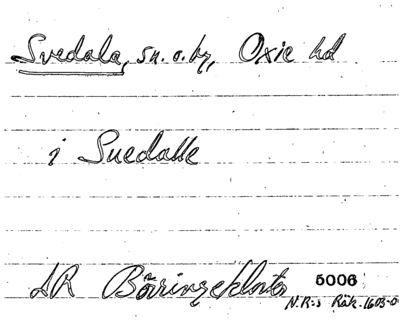 Svedala, sn. o. by, Oxie hd
i Suedalle
LR Börringekloster 5006
N.R:s Räk. 1603-0